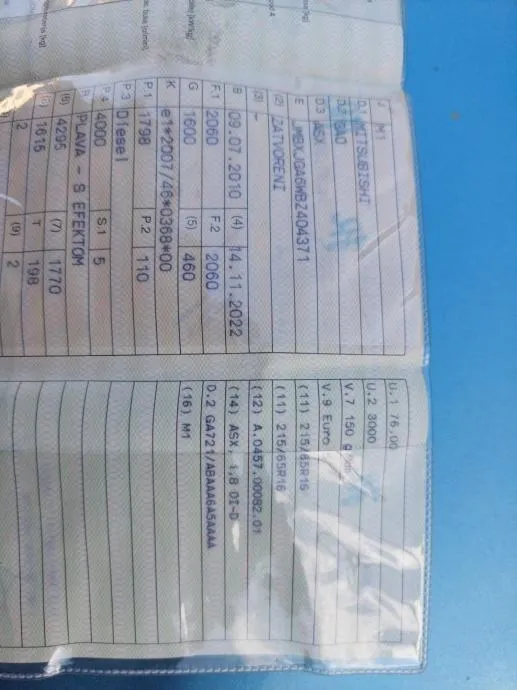 J M1
D.1 MITSUBISHI
D.2 GAO
D.3 ASX
E JMBXJGA6WBZ404371
(2) ZATVORENI
(3) -
B 09.07.2010 (4) 14.11.2022
F.1 2060 F.2 2060
G 1600 (5) 460
K e1*2007/46*0368*00
P.1 1798 P.2 110
P.3 Diesel
P.4 4000 S.1 5
R PLAVA - S EFEKTOM
(6) 4295 (7) 1770
(8) 1615 T 198
2 (9) 2
U.1 76,00
U.2 3000
V.7 150
V.9 Euro
(11) 215/65R16
(11) 215/65R16
(12) A.0457.00082.01
(14) ASX, 1,8 DI-D
D.2 GA721/ABAAA6A5AAAA
(16) M1